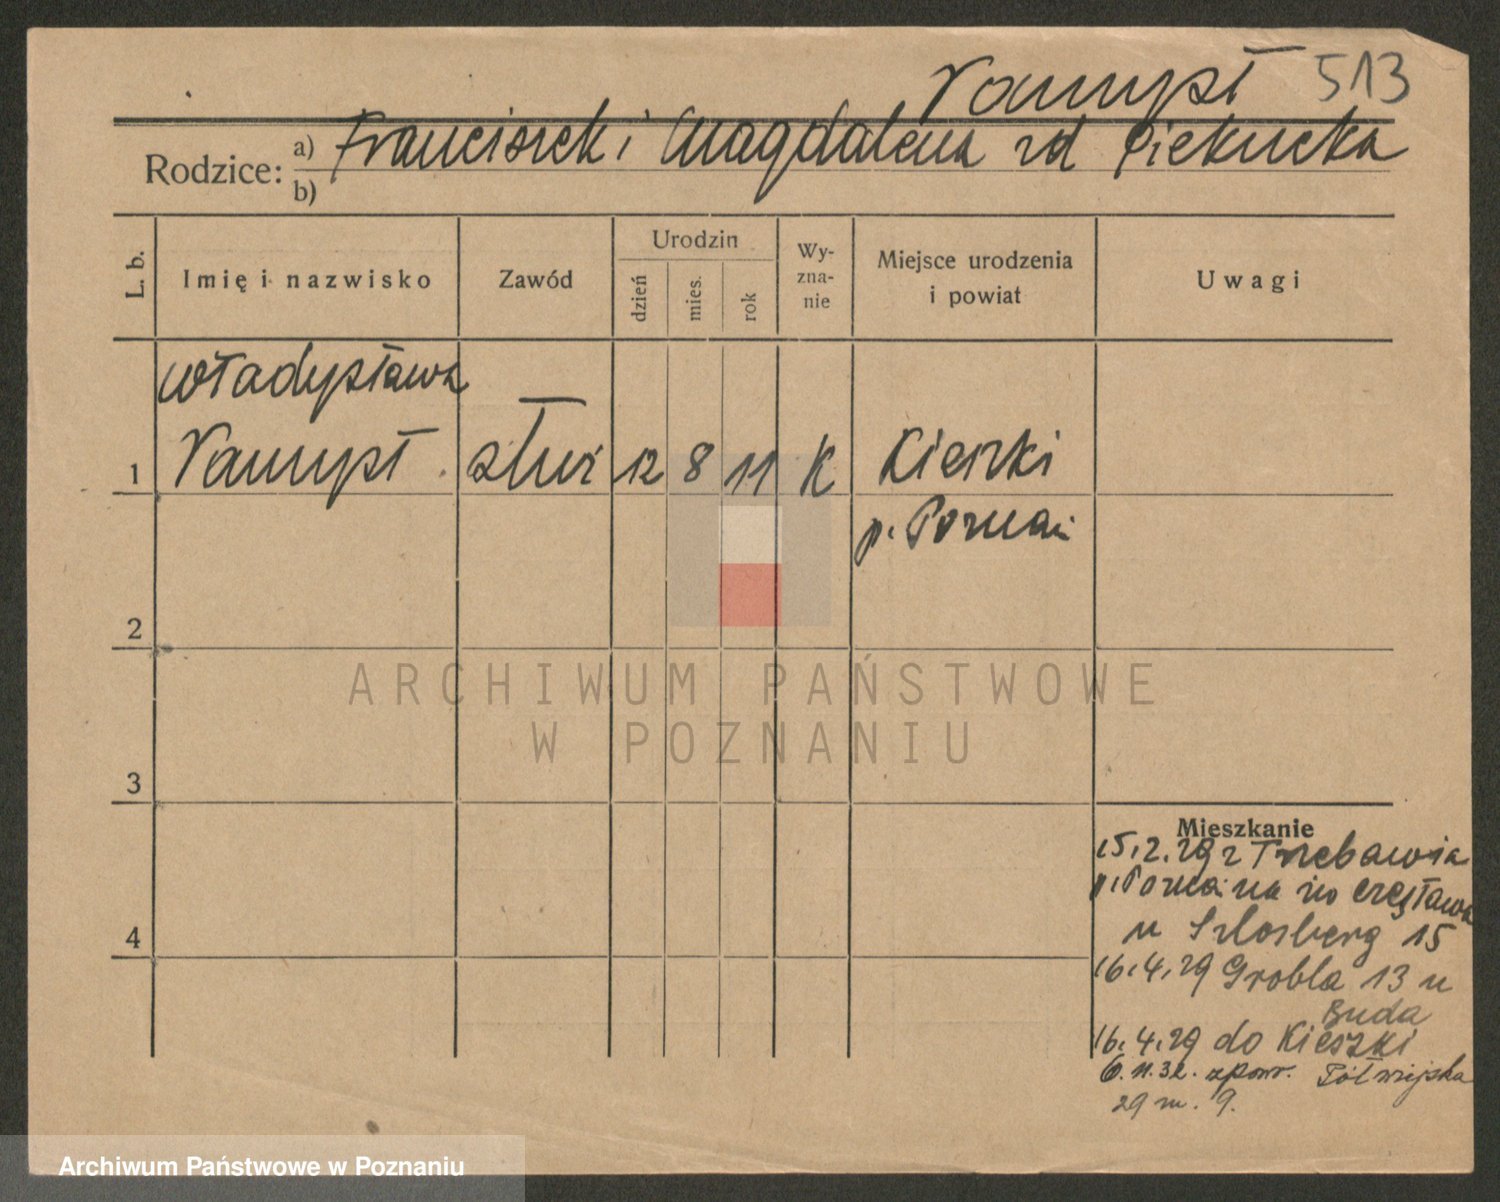 Vampył 513
Rodzice: a) Franciszek i Magdalena zd Piekucka
b)
L. b. Imię i nazwisko Zawód Urodzin dzień mies. rok Wy-zna-nie Miejsce urodzenia i powiat Uwagi
Władysława
1 Vampył służ 12 8 11 K Kierzki
p. Poznań
2
3
4
Mieszkanie
15.2.29 z Trzebawia
p. Poznań na św Czesława
u Szlosberg 15
16.4.29 Grobla 13 u
Buda
16.4.29 do Kierzki
6.11.32. zpow. Półwiejska
29 m. 9.
ARCHIWUM PAŃSTWOWE
W POZNANIU
Archiwum Państwowe w Poznaniu